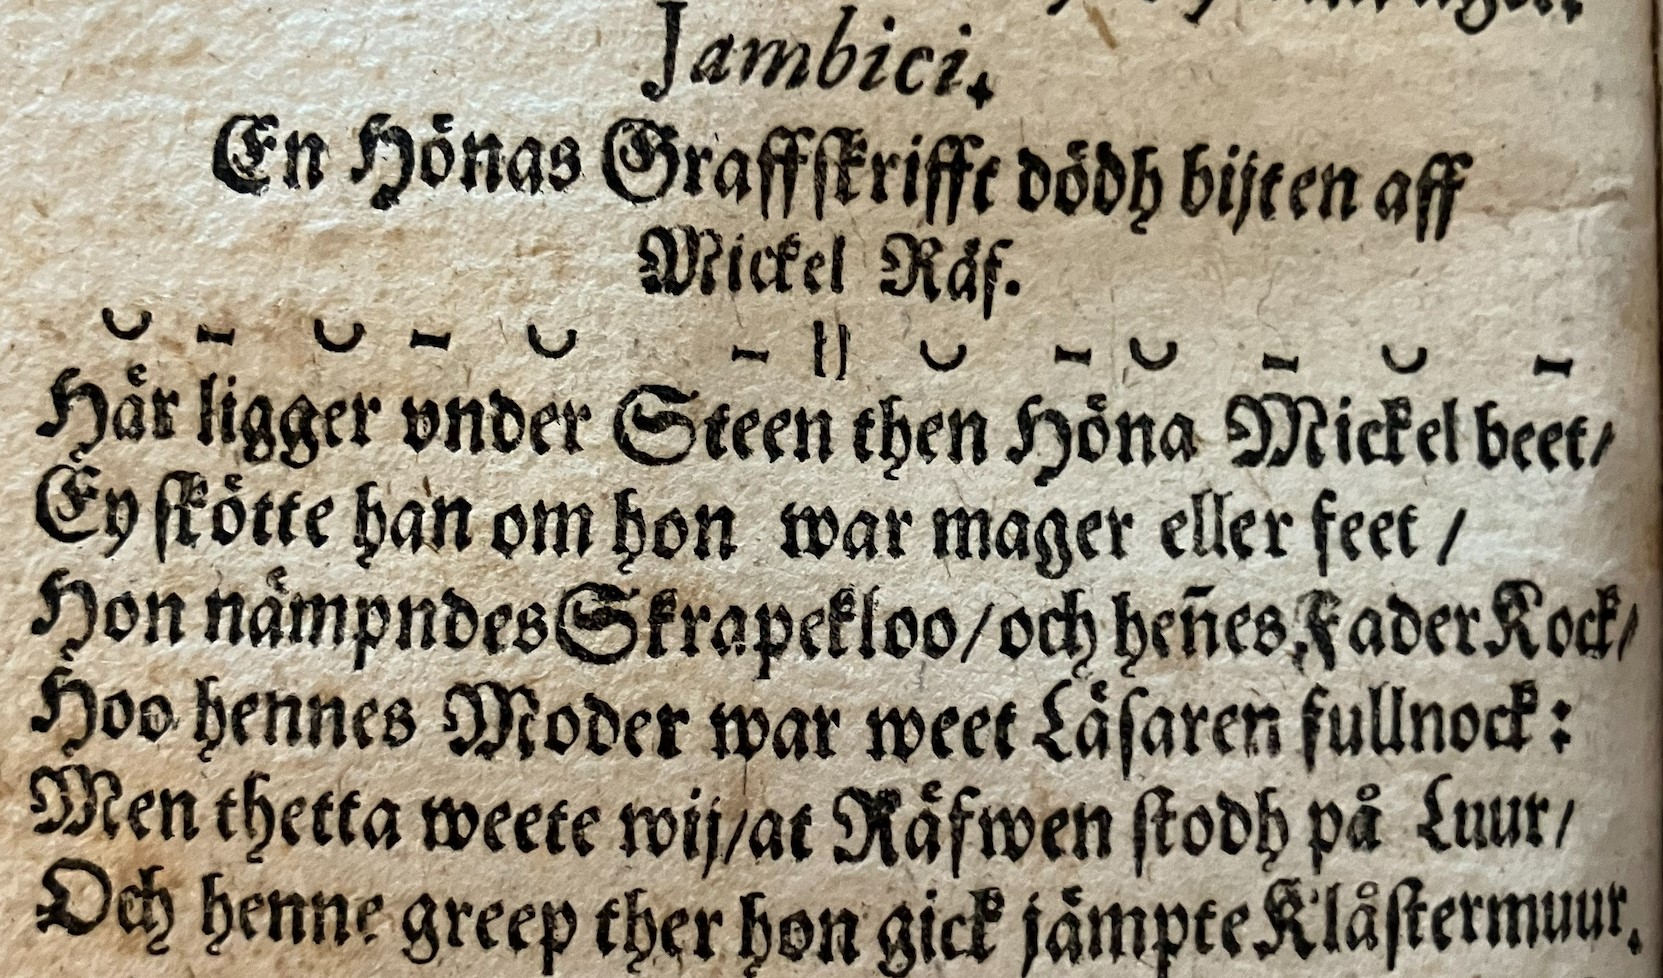 Jambici.
En Hönas Graffskrifft dödh bijten aff
Mickel Räf.
Här ligger vnder Steen then Höna Mickel beet/
Ey skötte han om hon war mager eller feet /
Hon nämpndes Skrapekloo/och hen̄es Fader Kock/
Hoo hennes Moder war weet Läsaren fullnock:
Men thetta weete wij/at Räfwen stodh på Luur/
Och henne greep ther hon gick jämpte Klåstermuur.